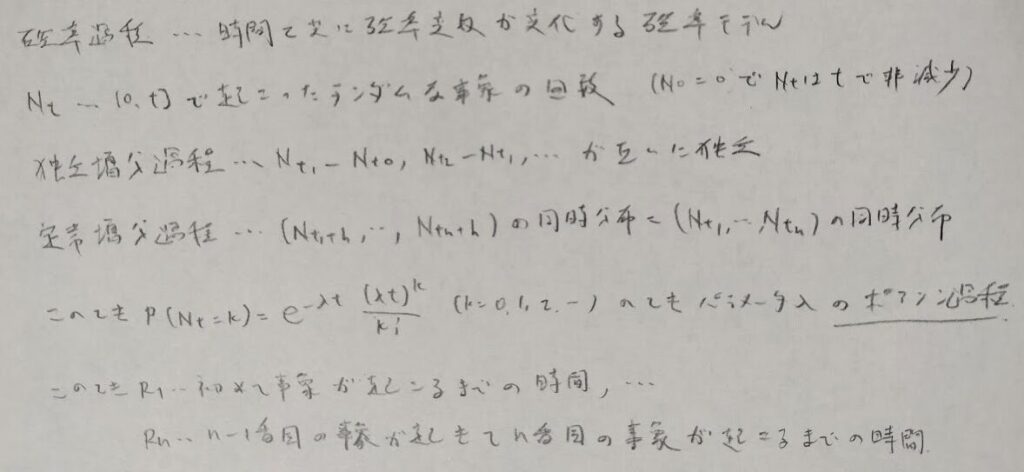 確率過程 … 時間と共に確率変数が変化する確率モデル
Nt … (0, t] で起こったランダムな事象の回数 (N0 = 0 で Nt は t で非減少)
独立増分過程 … Nt1 - Nt0, Nt2 - Nt1, … が互いに独立
定常増分過程 … (Nt1+h, …, Ntn+h) の同時分布 = (Nt1, …, Ntn) の同時分布
このとき P(Nt = k) = e^{-λt} (λt)^k / k! (k = 0, 1, 2, …) のとき パラメータλ のポアソン過程
このとき R1 … 初めて事象が起こるまでの時間, …
Rn … n-1番目の事象が起きて n番目の事象が起こるまでの時間.